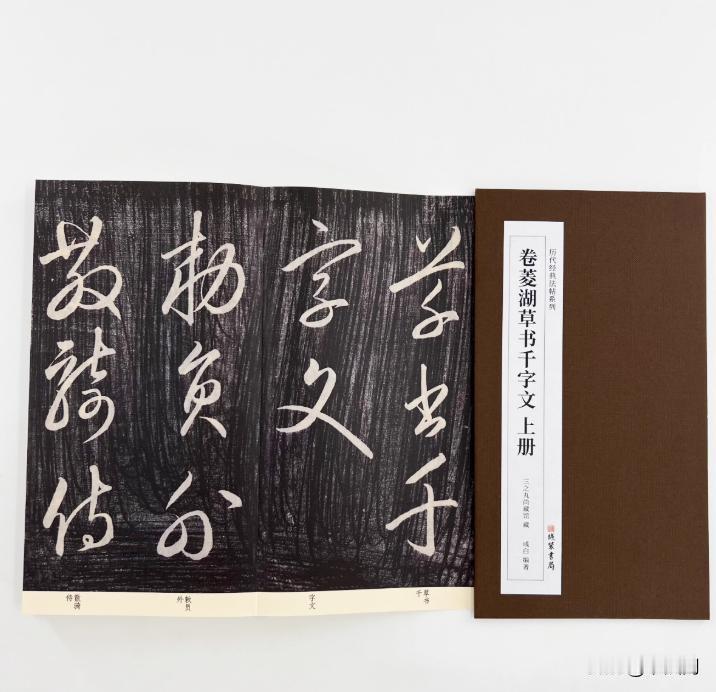 草书千
字文
敕员外
散骑侍
草书千
字文
敕员外
散骑侍
历代经典法帖系列
卷菱湖草书千字文 上册
三之丸尚藏馆 藏
成白 编著
线装书局